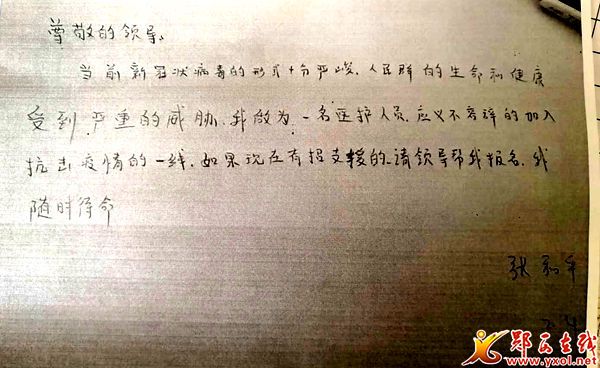 尊敬的领导:
当前新冠状病毒的形式十分严峻,人民群的生命和健康
受到严重的威胁,我做为一名医护人员,应义不容辞的加入
抗击疫情的一线,如果现在有招支援的,请领导帮我报名,我
随时待命
张
2.4
郧西在线
www.yxol.net